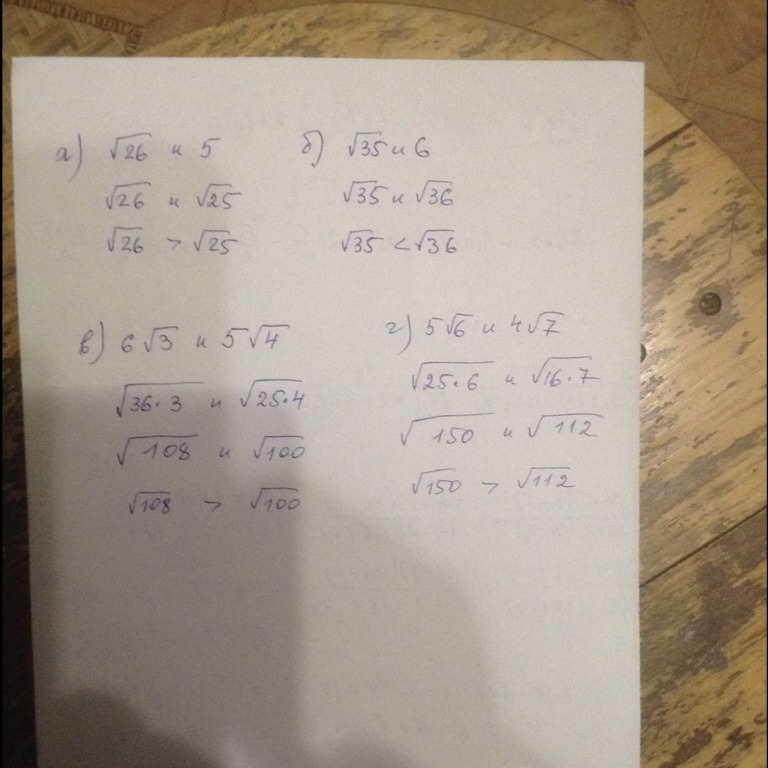 а) √26 и 5
√26 и √25
√26 > √25
б) √35 и 6
√35 и √36
√35 < √36
в) 6√3 и 5√4
√36·3 и √25·4
√108 и √100
√108 > √100
г) 5√6 и 4√7
√25·6 и √16·7
√150 и √112
√150 > √112